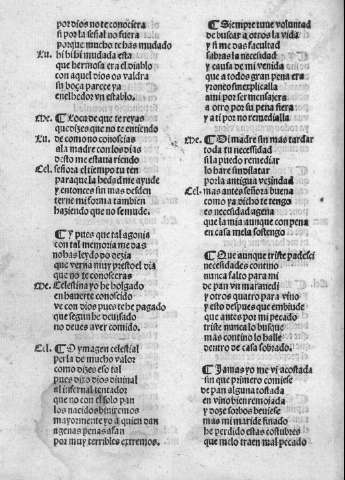 por dios no te conosciera
si por la señal no fuera
porque mucho te has mudado
Lu. hi hi hi mudada esta
que hermosa era el diablo
con aquel dios os saldra
su boca parece ya
en el hedor vn establo.
Me. ¶ Loca de que te reyas
que dizes que no te entiendo
Lu. de como no conoscias
ala madre con los dias
desto me estaua riendo
Cel. señora el tiempo tu ten
para que la hedad me ayude
y entonces sin mas desden
terne mi forma tambien
haziendo que no se mude.
¶ Y pues que tal agonia
con tal memoria me das
no has leydo do dezia
que verna muy presto el dia
que no te conosceras
Me. Celestina yo he holgado
en hauerte conoscido
ve con dios pues te he pagado
que segun he deuisado
no deues auer comido.
Cel. ¶ O ymagen celestial
perla de mucho valor
como dizes eso tal
pues dixo dios diuinal
al infernal tentador
que no con el solo pan
los nacidos biuiremos
mayormente yo a quien dan
agenas penas afan
por muy terribles estremos.
¶ Siempre tuue voluntad
de buscar a otros la vida
y si me das facultad
sabras la necesidad
y causa de mi venida
que a todos gran pena era
yr onos sin explicalla
a mi por ser mensajera
a otro por su pena fiera
y a ti por no remedialla
Me. ¶ Di madre sin mas tardar
toda tu necessidad
si la puedo remediar
lo hare sin dilatar
por la antigua vezindad
Cel. mas antes señora buena
como ya dicho te tengo
es necesidad agena
que la mia aunque con pena
en casa me la sostengo
¶ Que aunque triste padesci
necesidades contino
nunca falto para mi
de pan vn marauedi
y otros quatro para vino
y esto despues que embiude
que antes por mi pecado
triste nunca lo busque
mas contino lo halle
dentro de casa sobrado.
¶ Jamas yo me vi acostada
sin que primero comiese
de pan alguna tostada
en vino bien remojada
y doze sorbos beuiese
mas mi marido finado
he perdido estas costubres
que me lo traen mal pecado